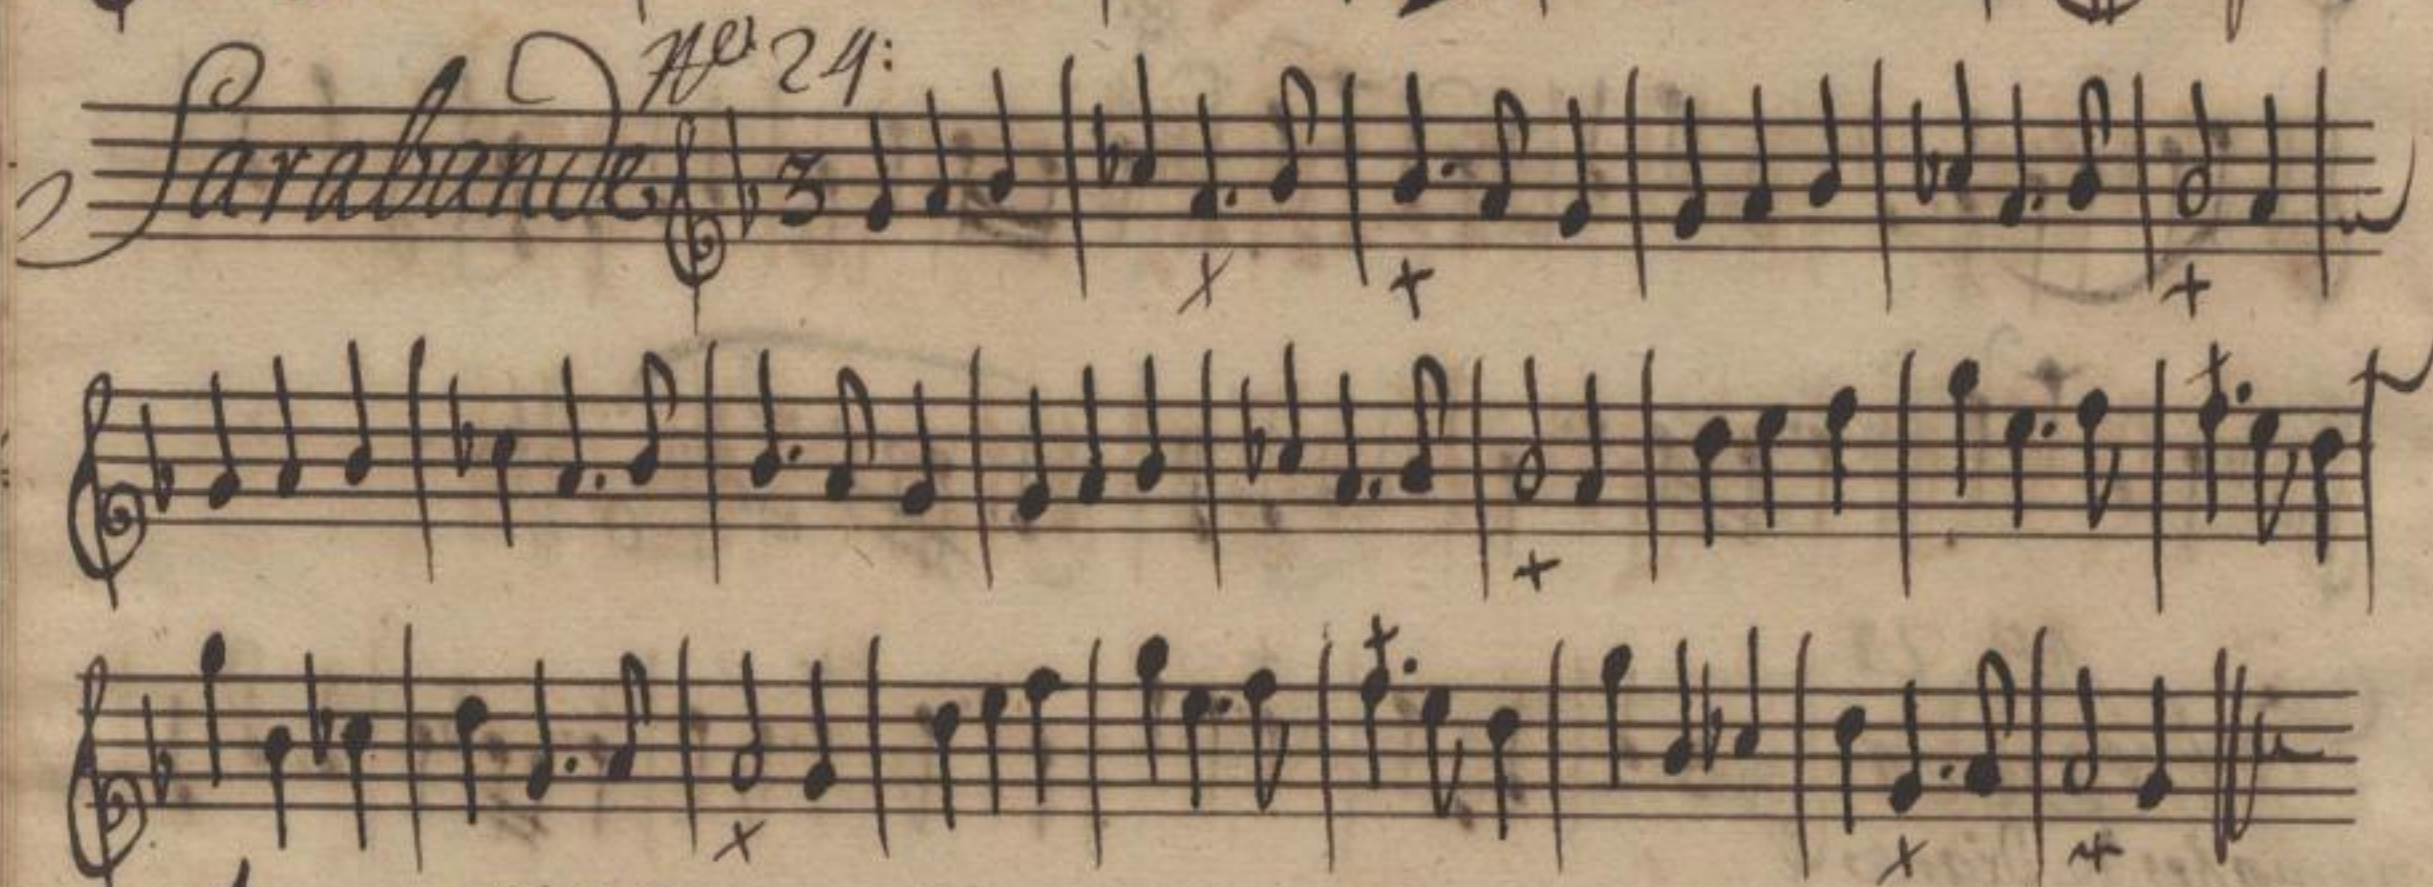 Sarabande No 24:
3